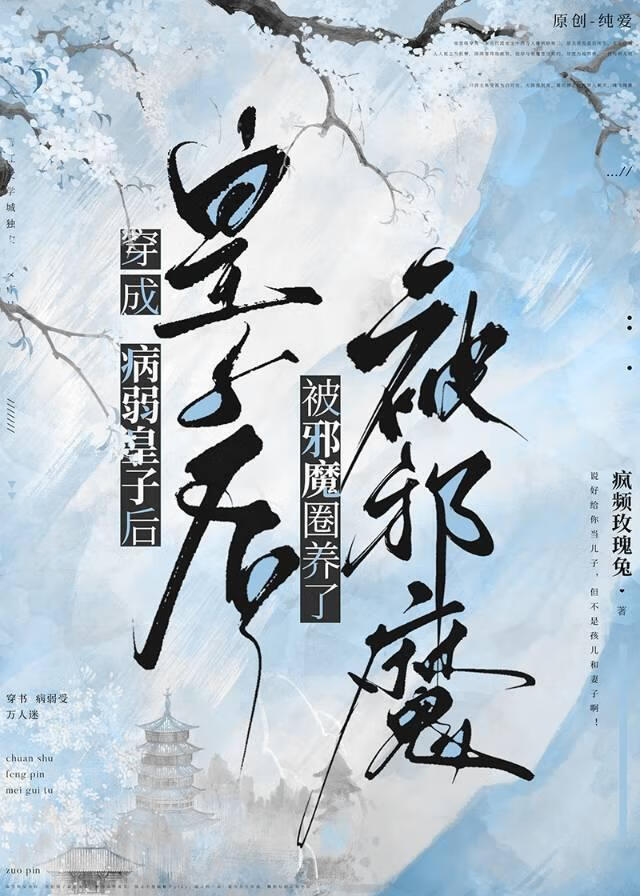 原创-纯爱
...//
皇子后
穿成 病弱皇子后
被邪魔
被邪魔圈养了
疯频玫瑰兔
著
说好给你当儿子，但不是孩儿和妻子啊！
穿书 病弱受
万人迷
chuan shu
feng pin
mei gui tu
zuo pin